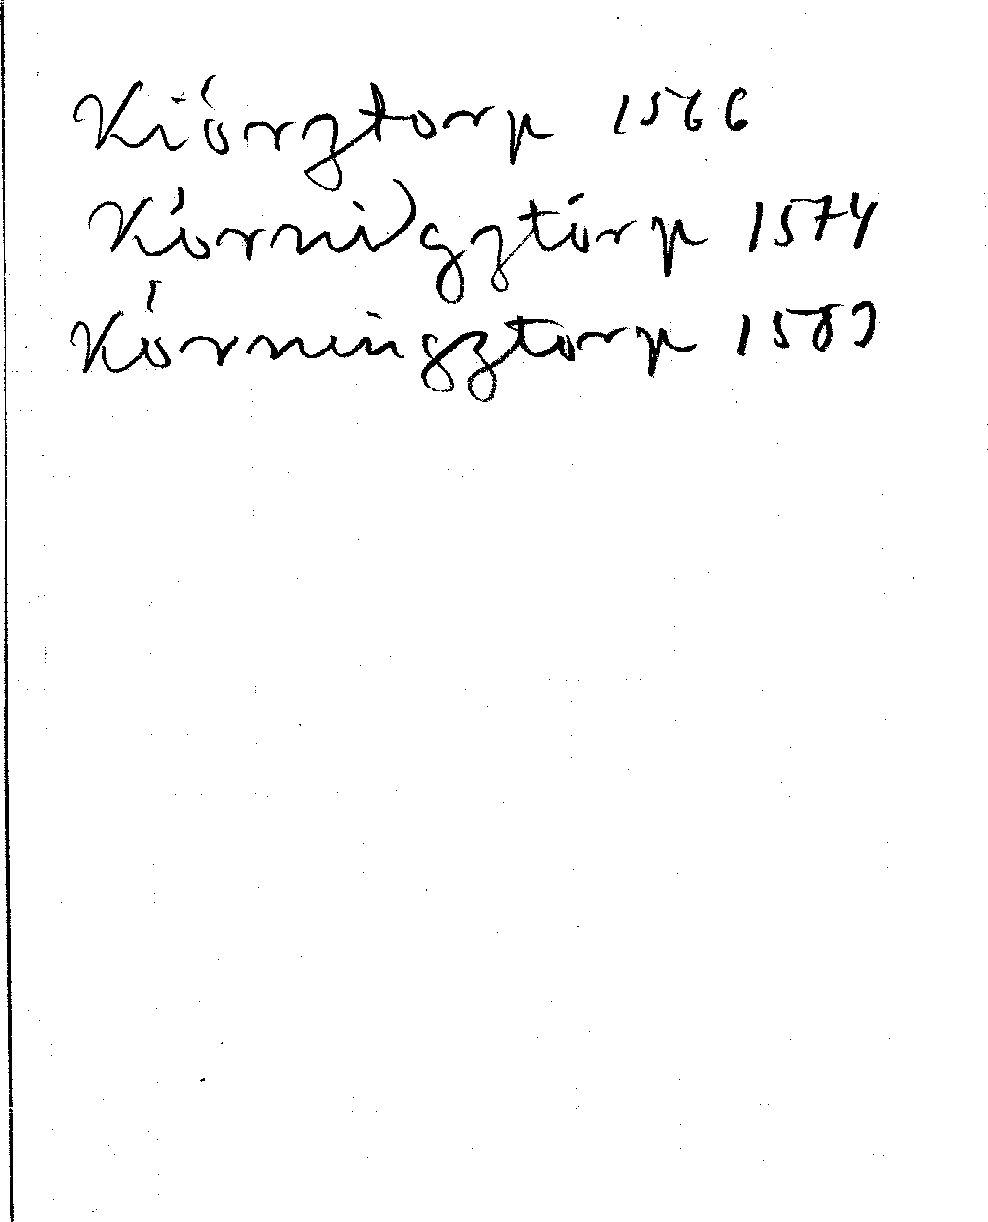 Kiórztorp 1566
Kórni)gztórp 1574
Kórningztorp 1583